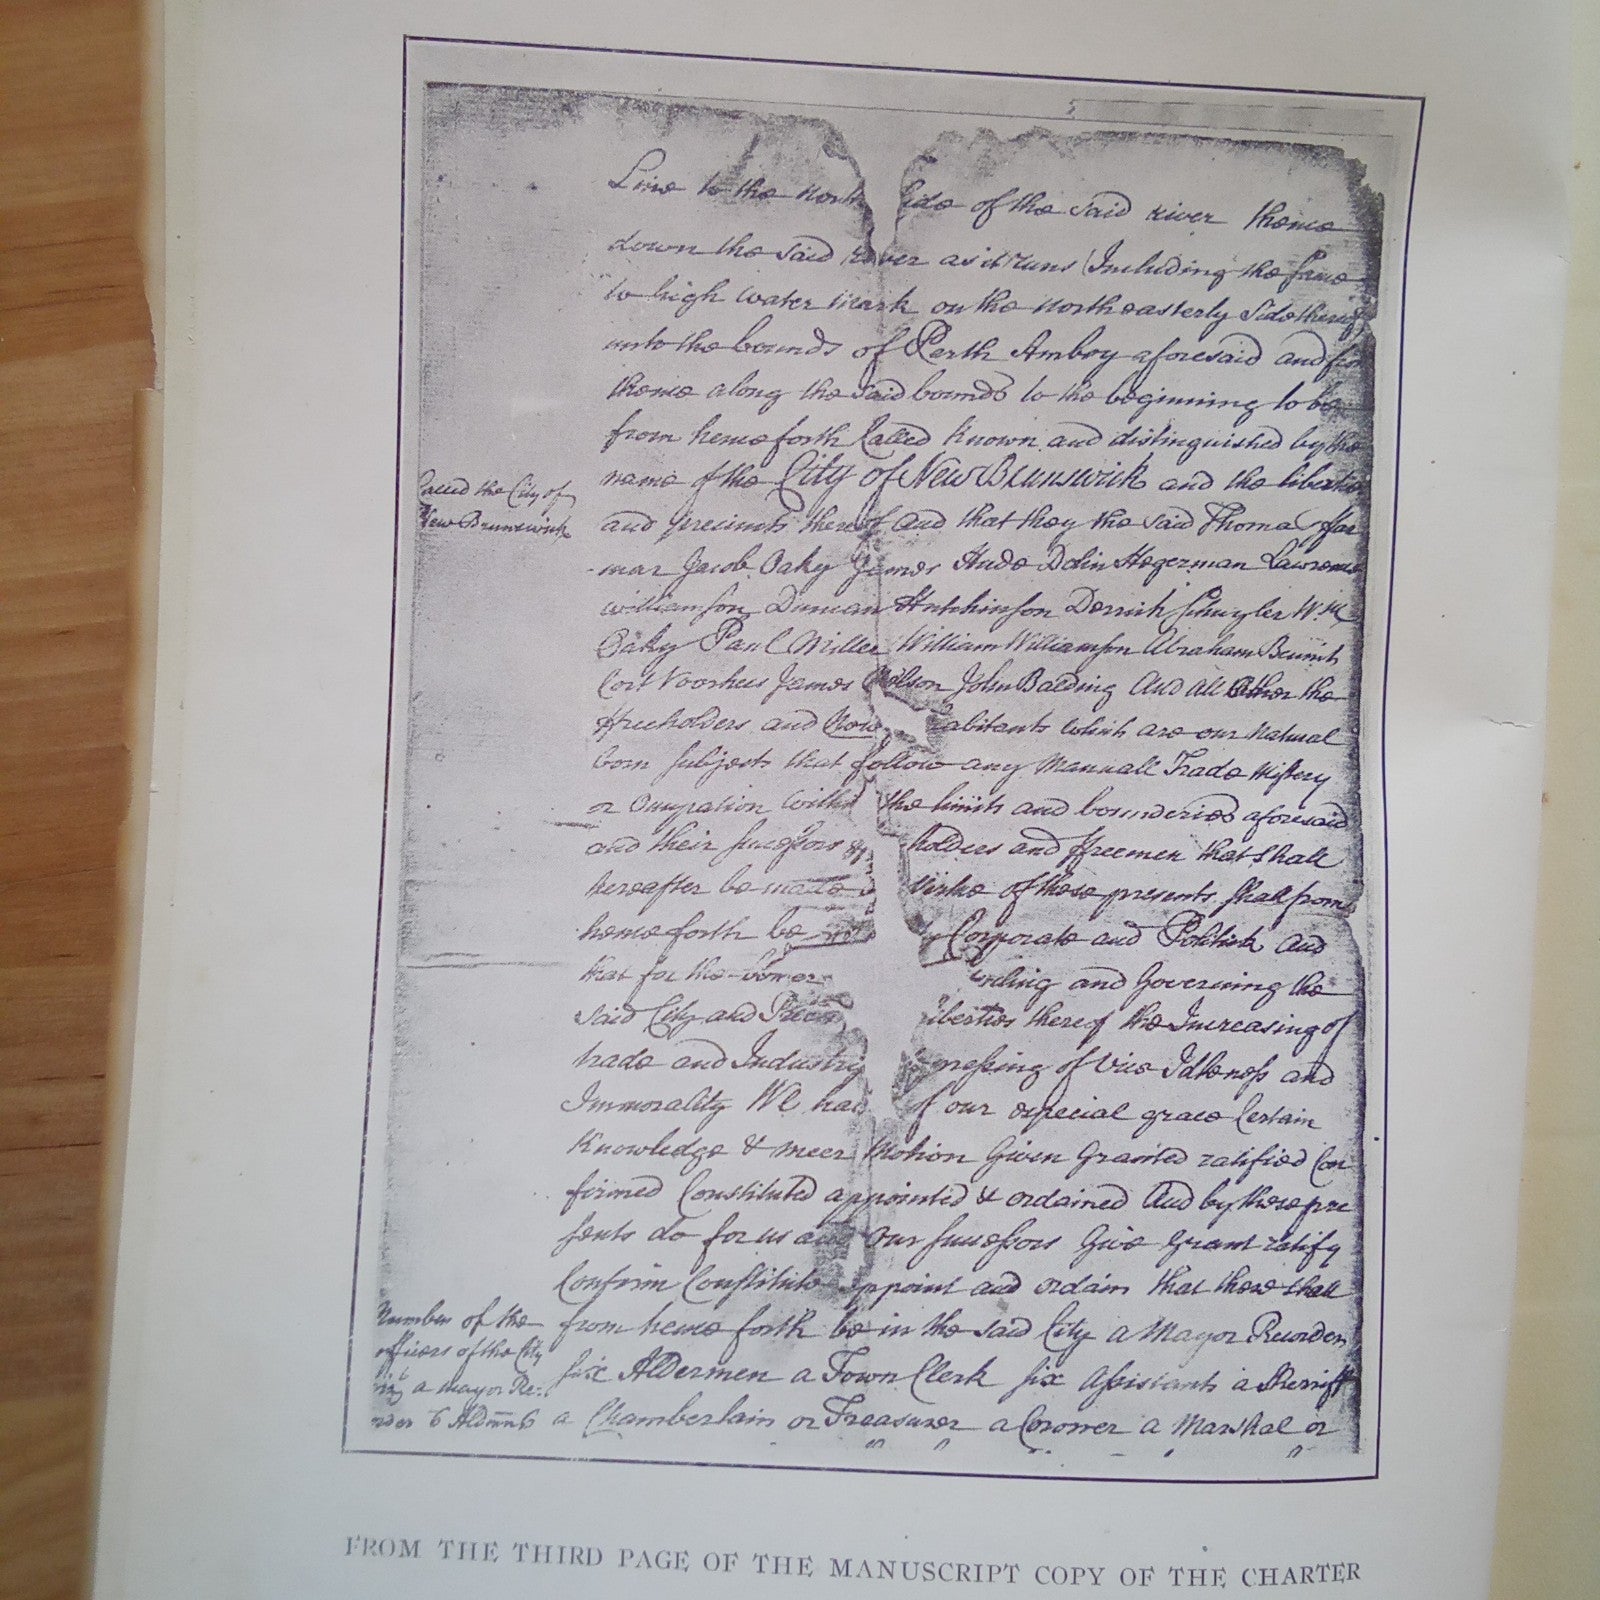 Line to the north side of the said river thence
down the said river as it runs Including the same
to high water mark on the northeasterly side thereof
unto the bounds of Perth Amboy aforesaid and from
thence along the said bounds to the beginning to be
from henceforth Called known and distinguished by the
name of the City of New Brunswick and the liberties
Called the City of
New Brunswick
and precincts thereof And that they the said Thomas ffar
mar Jacob Oaky James Hude Dolin Hegerman Lawrence
Williamson Duncan Hutchinson Derrick Schuyler Wm
Oaky Paul Miller William Williamson Abraham
Cort Voorhees James Nilson John Balding And all other the
ffreeholders and Now abitants which are our natural
born Subjects that follow any Manuall Trade Mistery
or Occupation within the limits and bounderies aforesaid
and their successors holders and ffreemen that shall
hereafter be made virtue of these presents shall from
henceforth be Corporate and Politick and
that for the better ruling and Governing the
said City and iberties thereof the Increasing of
trade and Industry pressing of Vice Idleness and
Immorality We ha of our especial grace Certain
Knowledge & meer Motion Given Granted ratified Con
firmed Constituted appointed & ordained And by these pre
sents do for us and our successors Give Grant ratify
Confirm Constitute appoint and ordain that there shall
Number of the
officers of the City
a mayor Re:
order 6 Aldmn 6
from henceforth be in the said City a Mayor Recorder
six Aldermen a Town Clerk six Assistants a Sherriff
a Chamberlain or Treasurer a Coroner a Marshal or
FROM THE THIRD PAGE OF THE MANUSCRIPT COPY OF THE CHARTER